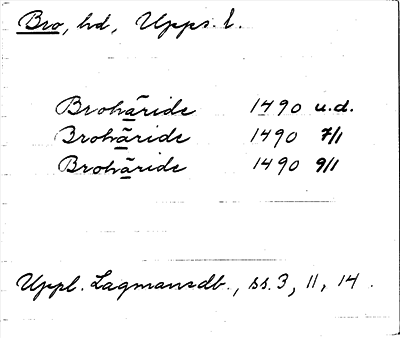 Bro, hd, Upps. l.
Brohäride 1490 u.d.
Brohäride 1490 7/1
Brohäride 1490 9/1
Uppl. Lagmansdb., ss. 3, 11, 14.